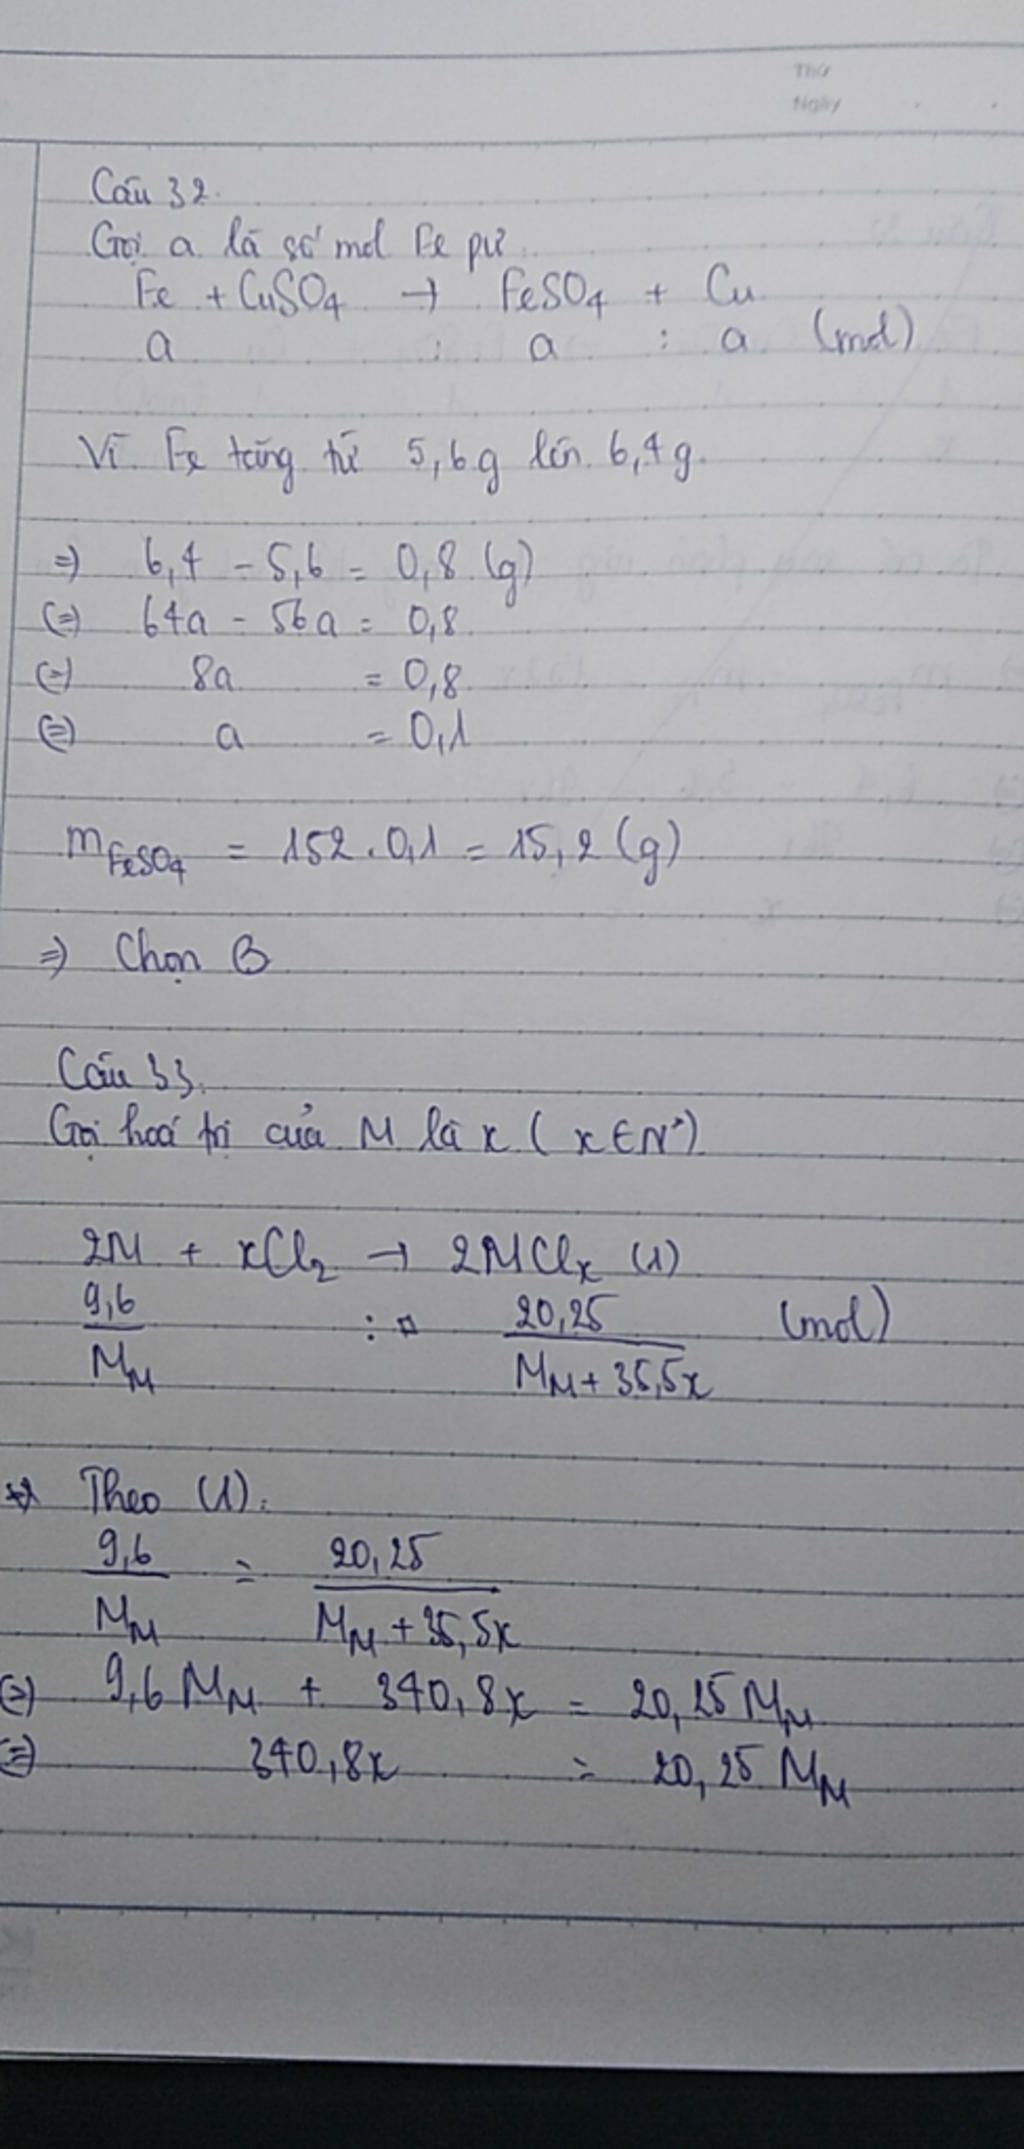 Thứ
Ngày
Câu 32.
Gọi a là số mol Fe pư.
Fe + CuSO4 → FeSO4 + Cu
a : a : a (mol)
Vì Fe tăng từ 5,6g lên 6,4g.
⇒ 6,4 - 5,6 = 0,8 (g)
(=) 64a - 56a = 0,8
(=) 8a = 0,8
(=) a = 0,1
mFeSO4 = 152.0,1 = 15,2 (g)
⇒ Chọn B
Câu 33.
Gọi hoá trị của M là x (x∈N*)
2M + xCl2 → 2MClx (1)
9,6/MM : 20,25/MM + 35,5x (mol)
Theo (1):
9,6/MM = 20,25/MM + 35,5x
(=) 9,6 MM + 340,8x = 20,25 MM
(=) 340,8x = 20,25 MM